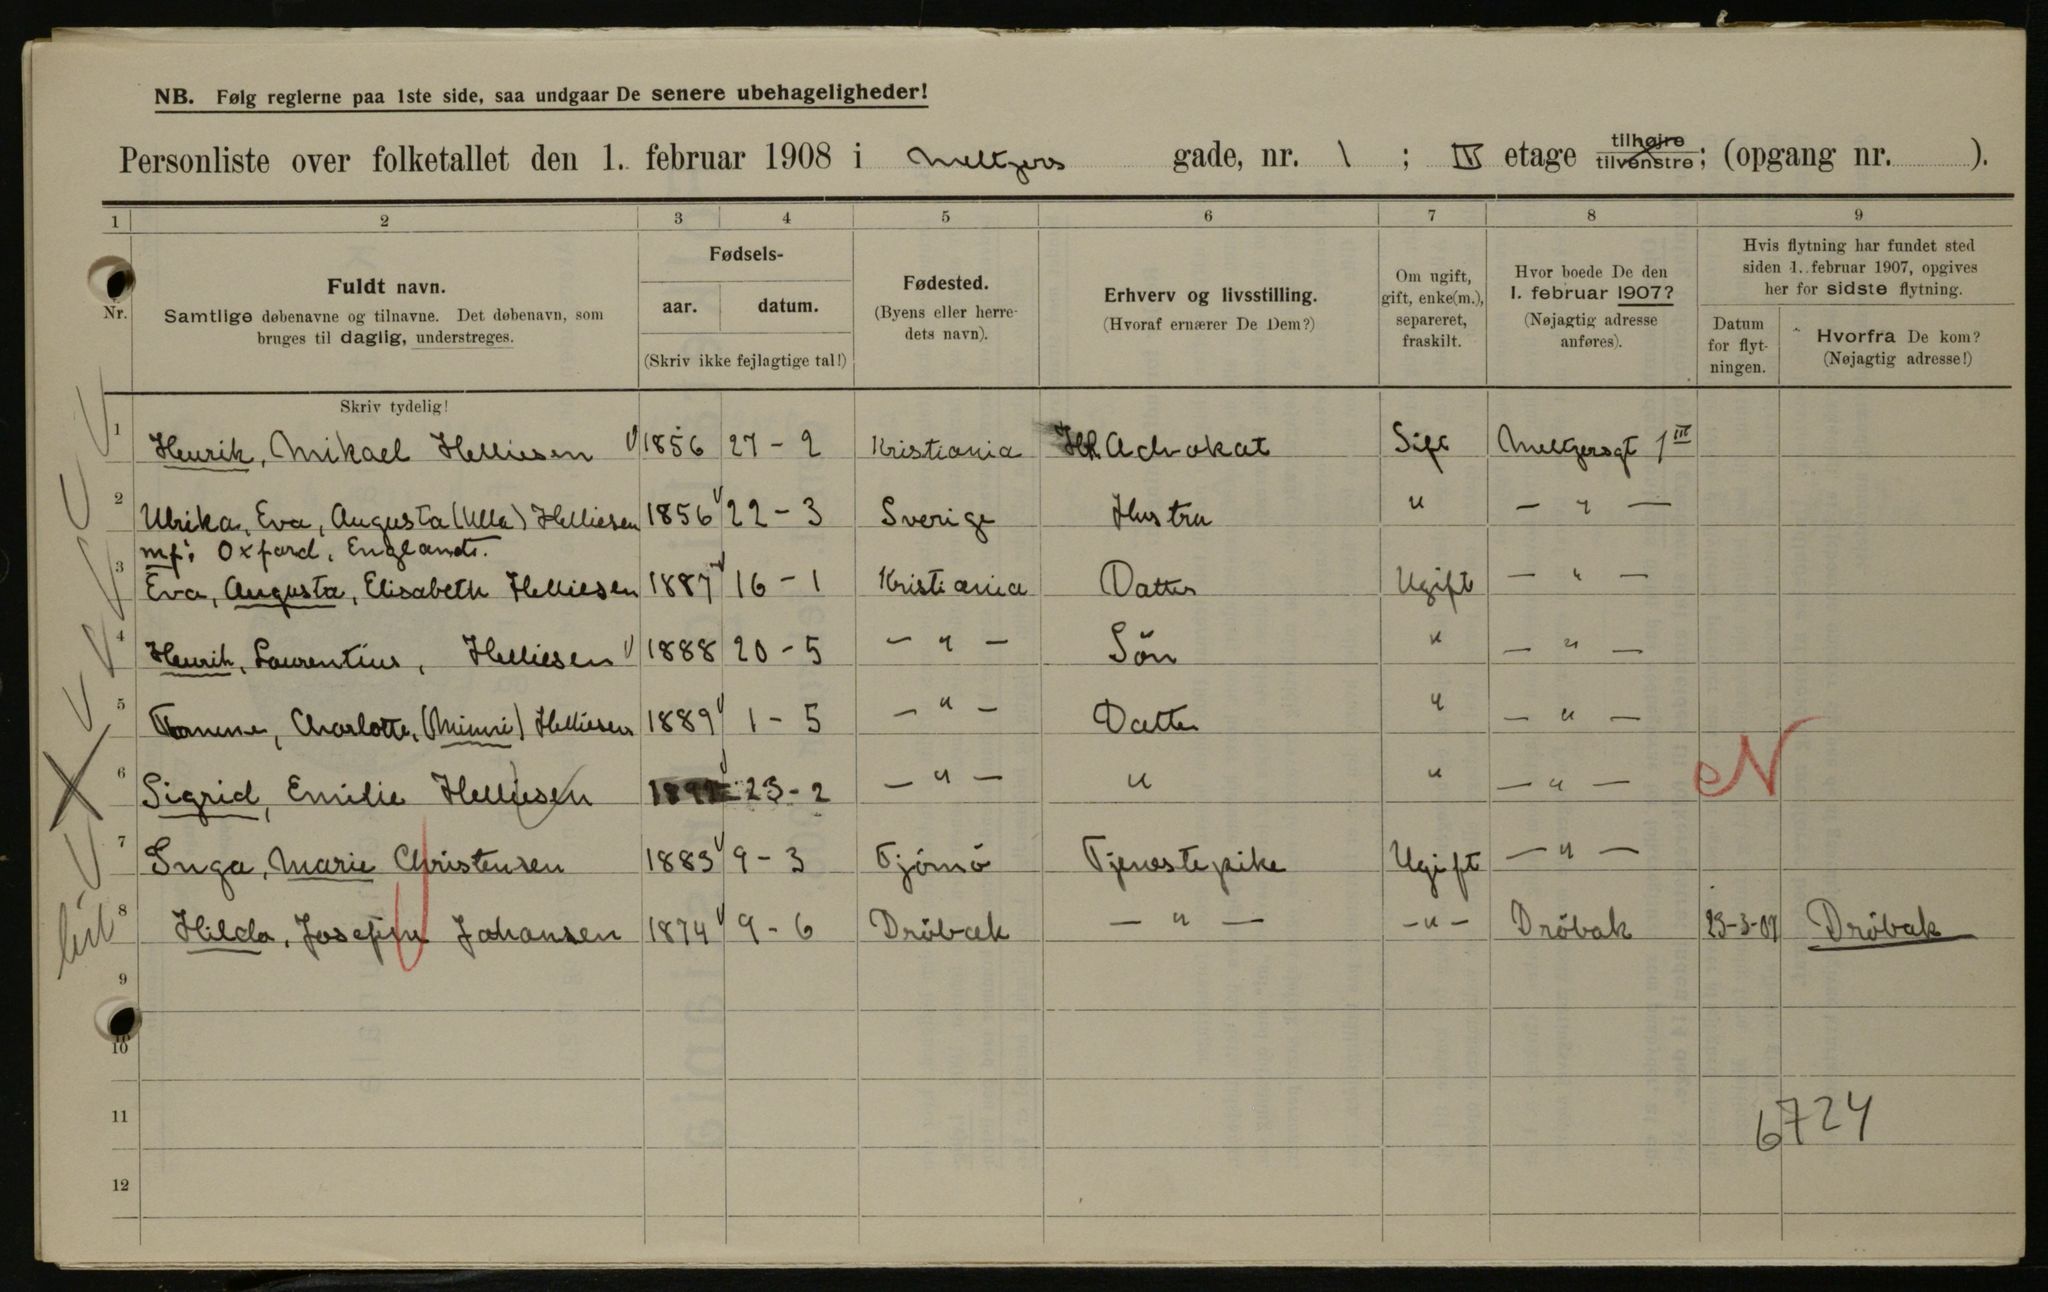 NB. Følg reglerne paa 1ste side, saa undgaar De senere ubehageligheder!
Personliste over folketallet den 1. februar 1908 i Meltzers gade, nr. 1 ; IV etage tilhøjre tilvenstre; (opgang nr. ).
1 2 3 4 5 6 7 8 9
Nr.
Fuldt navn.
Samtlige døbenavne og tilnavne. Det døbenavn, som
bruges til daglig, understreges.
Fødsels-
aar. datum.
(Skriv ikke fejlagtige tal!)
Fødested.
(Byens eller herre-
dets navn).
Erhverv og livsstilling.
(Hvoraf ernærer De Dem?)
Om ugift,
gift, enke(m.),
separeret,
fraskilt.
Hvor boede De den
1. februar 1907?
(Nøjagtig adresse
anføres).
Hvis flytning har fundet sted
siden 1. februar 1907, opgives
her for sidste flytning.
Datum
for flyt-
ningen.
Hvorfra De kom?
(Nøjagtig adresse!)
Skriv tydelig!
1 Henrik, Mikael Helliesen 1856 27 - 2 Kristiania Advokat Gift Meltzersgt 1 III
2 Ulrika, Eva, Augusta (Ulla) Helliesen 1856 22 - 3 Sverige Hustru " - " -
mf: Oxford, England.
3 Eva, Augusta, Elisabeth Helliesen 1887 16 - 1 Kristiania Datter Ugift - " -
4 Henrik, Laurentius, Helliesen 1888 20 - 5 - " - Sön " - " -
5 Charlotte, (Mimi) Helliesen 1889 1 - 5 - " - Datter " - " -
6 Sigrid, Emilie Helliesen 23 - 2 - " - " " - " - N
7 Inga, Marie Christensen 1883 9 - 3 Tjömö Tjenestepike Ugift - " -
8 Hilda, Josefine Johansen 1874 9 - 6 Dröbak - " - - " - Dröbak 23-3-07 Dröbak
9
10
11
6724
12